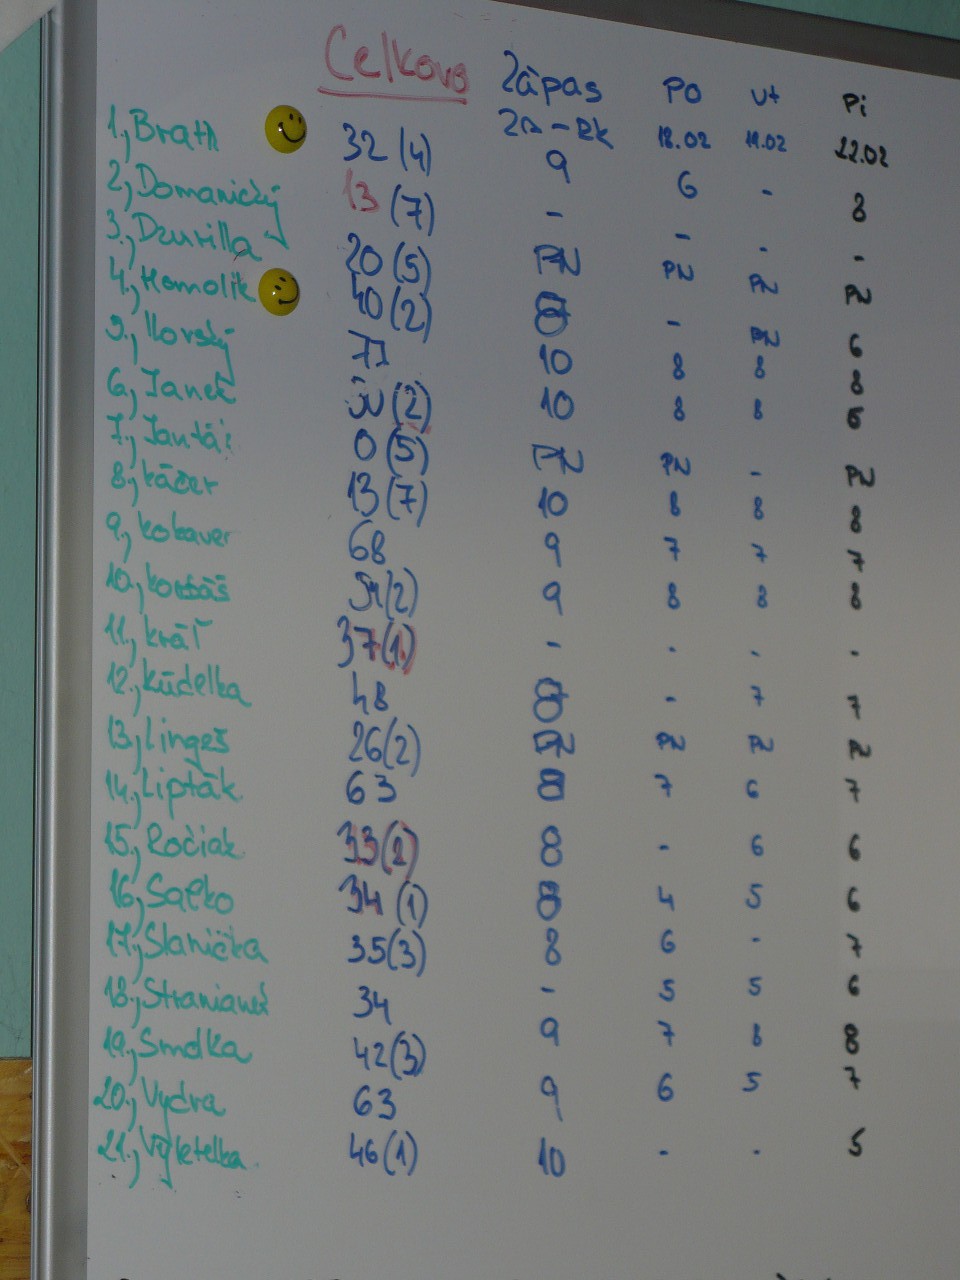 Celkovo Zápas PO Ut Pi
ZA-RK 18.02 19.02 22.02
1., Brath 32 (4) 9 6 - 8
2., Domanický 13 (7) - - - -
3., Dzurilla 20 (5) PN PN PN PN
4., Homolik 40 (2) 8 - PN 6
5., Ilovský 77 10 8 8 8
6., Janek (2) 10 8 8 6
7., 0 (5) PN PN - PN
8., Káčer 13 (7) 10 8 8 8
9., Kobaver 68 9 7 7 7
10., Korbáš (2) 9 8 8 8
11., Kráľ 37 (1) - - - -
12., Kúdelka 48 8 - 7 7
13., Lingeš 26 (2) PN PN PN PN
14., Lipták 63 8 7 6 7
15., Ročiak 33 (2) 8 - 6 6
16., Saľko 34 (1) 8 4 5 6
17., Slanička 35 (3) 8 6 - 7
18., Stranianek 34 - 5 5 6
19., Smolka 42 (3) 9 7 8 8
20., Vydra 63 9 6 5 7
21., Vyletelka 46 (1) 10 - - 5